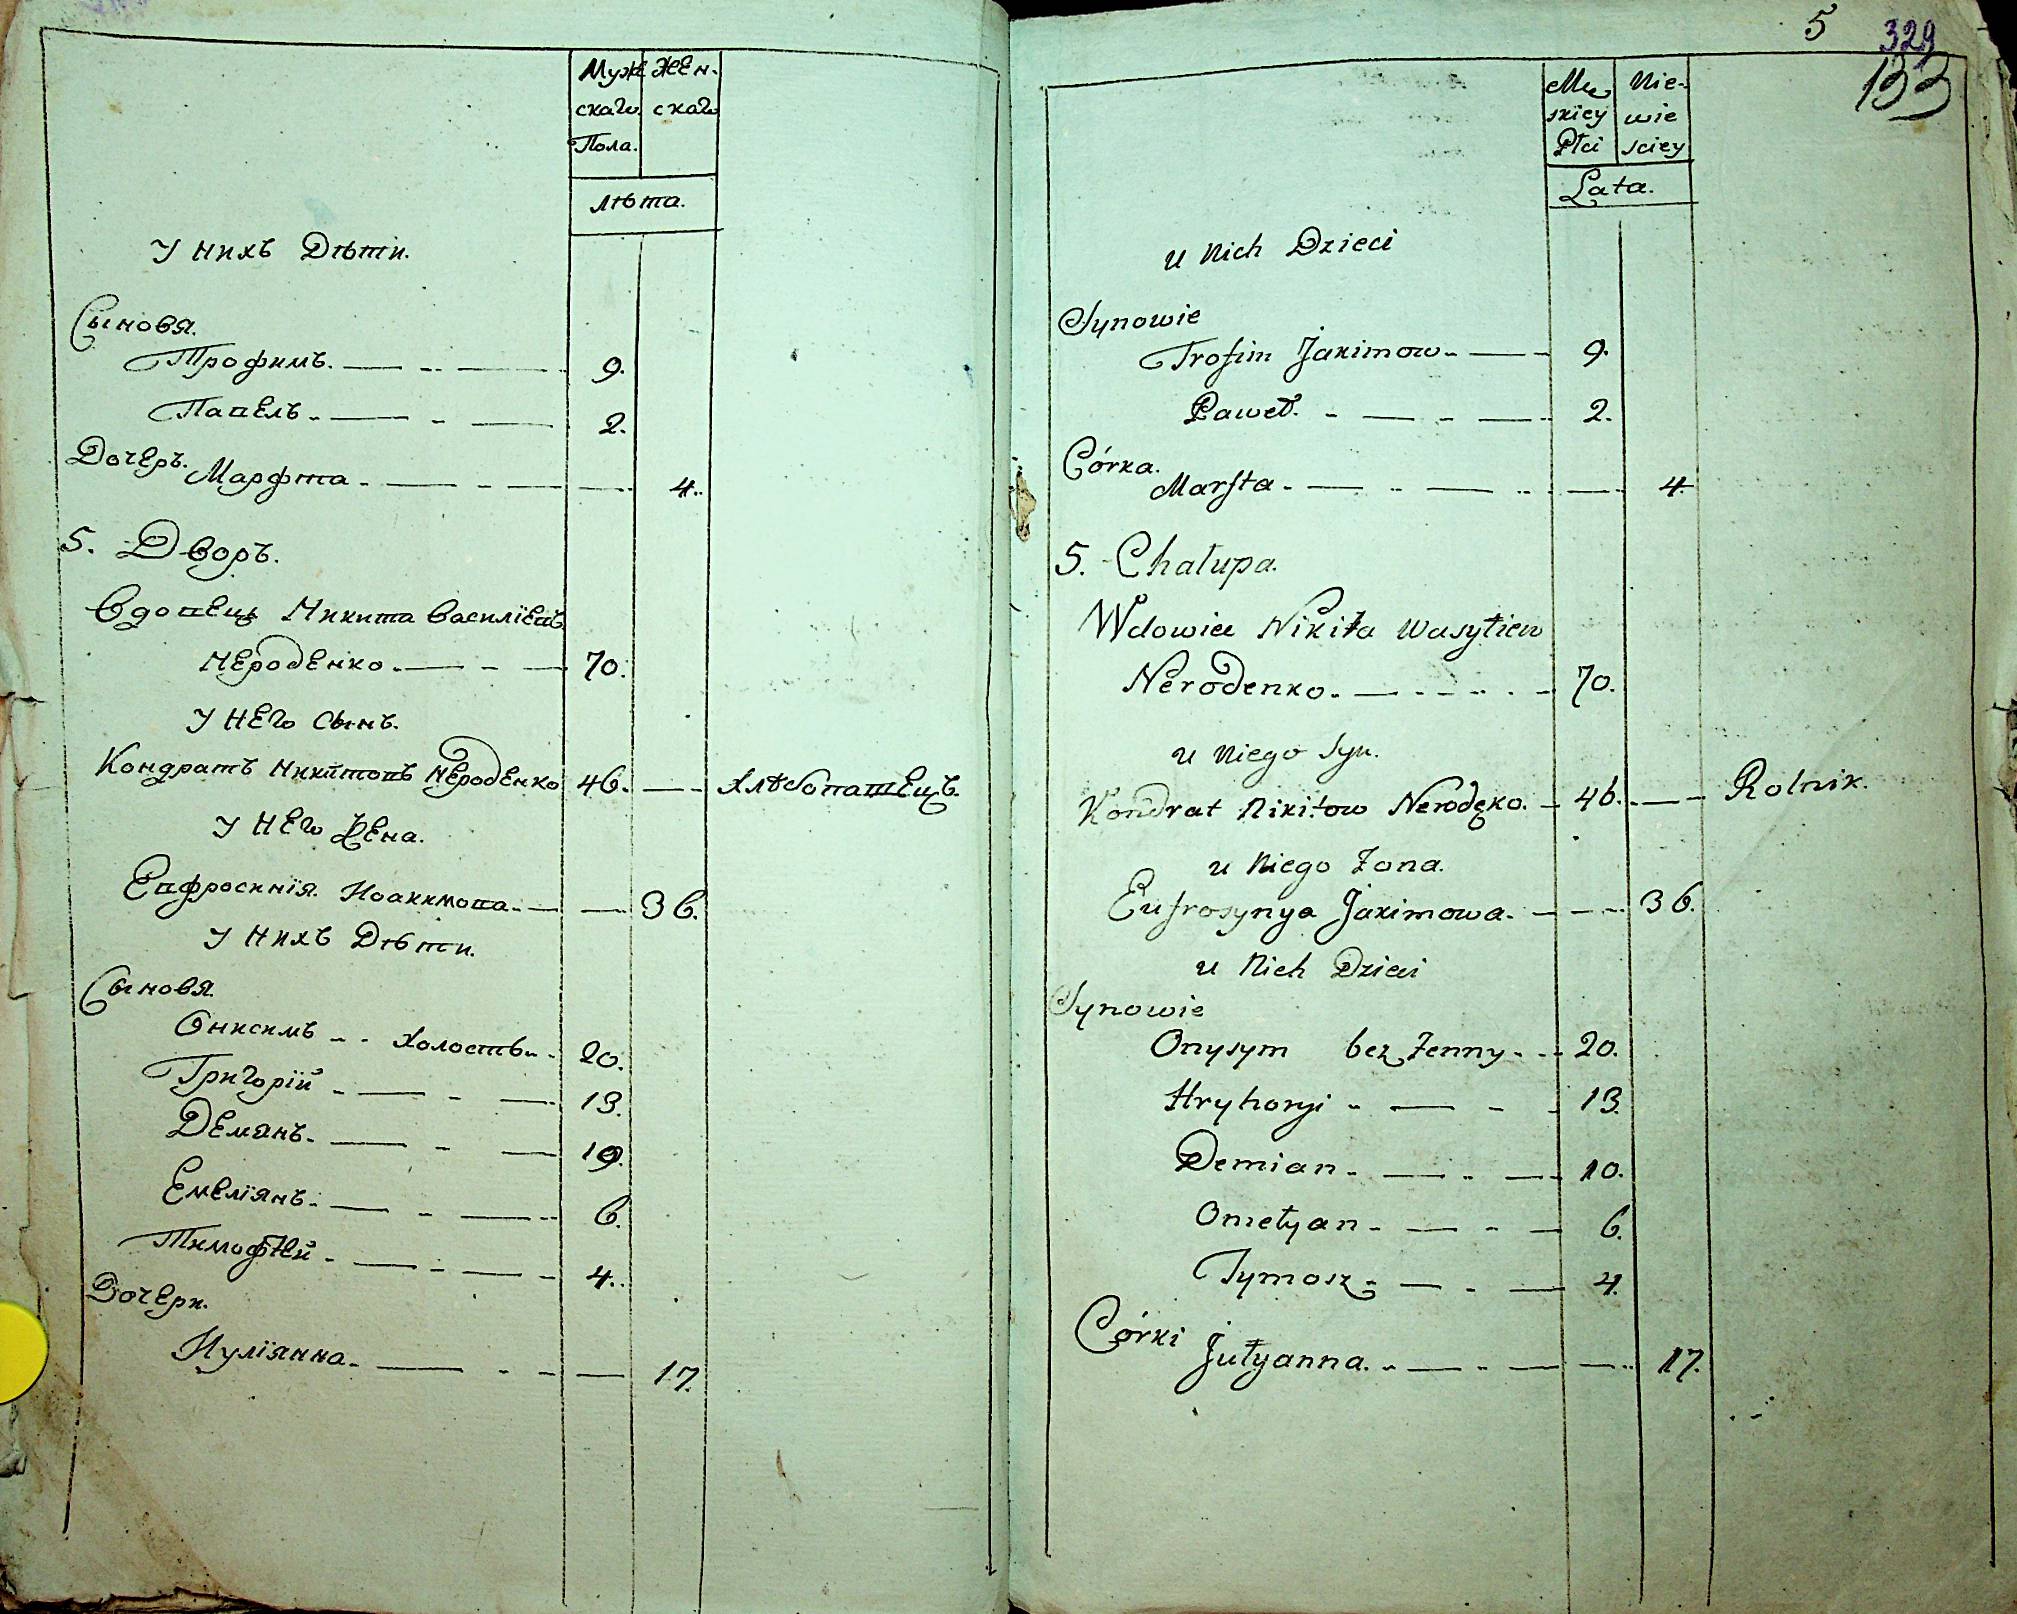 Муже Жен-
скаго скаго
Пола.
лѣта.
У нихъ Дѣти.
Сыновя.
Трофимъ. 9.
Павелъ. 2.
Дочеръ.
Марфта 4.
5. Дворъ.
Вдовецъ Никита Василіевъ
Нероденко 70.
У Него Сынъ.
Кондратъ Никитовъ Нероденко 46. Хлѣбопашецъ.
У Него Жена.
Евфросинїя Иоакимова 36.
У Нихъ Дѣти.
Сыновя
Онисимъ Холостъ 20.
Григорїй 13.
Демянъ. 10.
Емелїянъ. 6.
Тимофѣй 4.
Дочери.
Иулїянна. 17.
5 329
133
Mę Nie-
skiey wie
Płci sciey
Lata.
u Nich Dzieci
Synowie
Trofim Jakimow 9.
Paweł. 2.
Córka.
Marfta 4.
5. Chałupa.
Wdowiec Nikita Wasyłiew
Nerodenko. 70.
u Niego Syn.
Kondrat Nikitow Nerodęko. 46. Rolnik.
u Niego Zona.
Eufrosynya Jakimowa. 36.
u Nich Dzieci
Synowie
Onysym bez Zenny 20.
Hryhoryi 13.
Demian 10.
Omełyan 6.
Tymosz 4.
Córki
Jułyanna. 17.